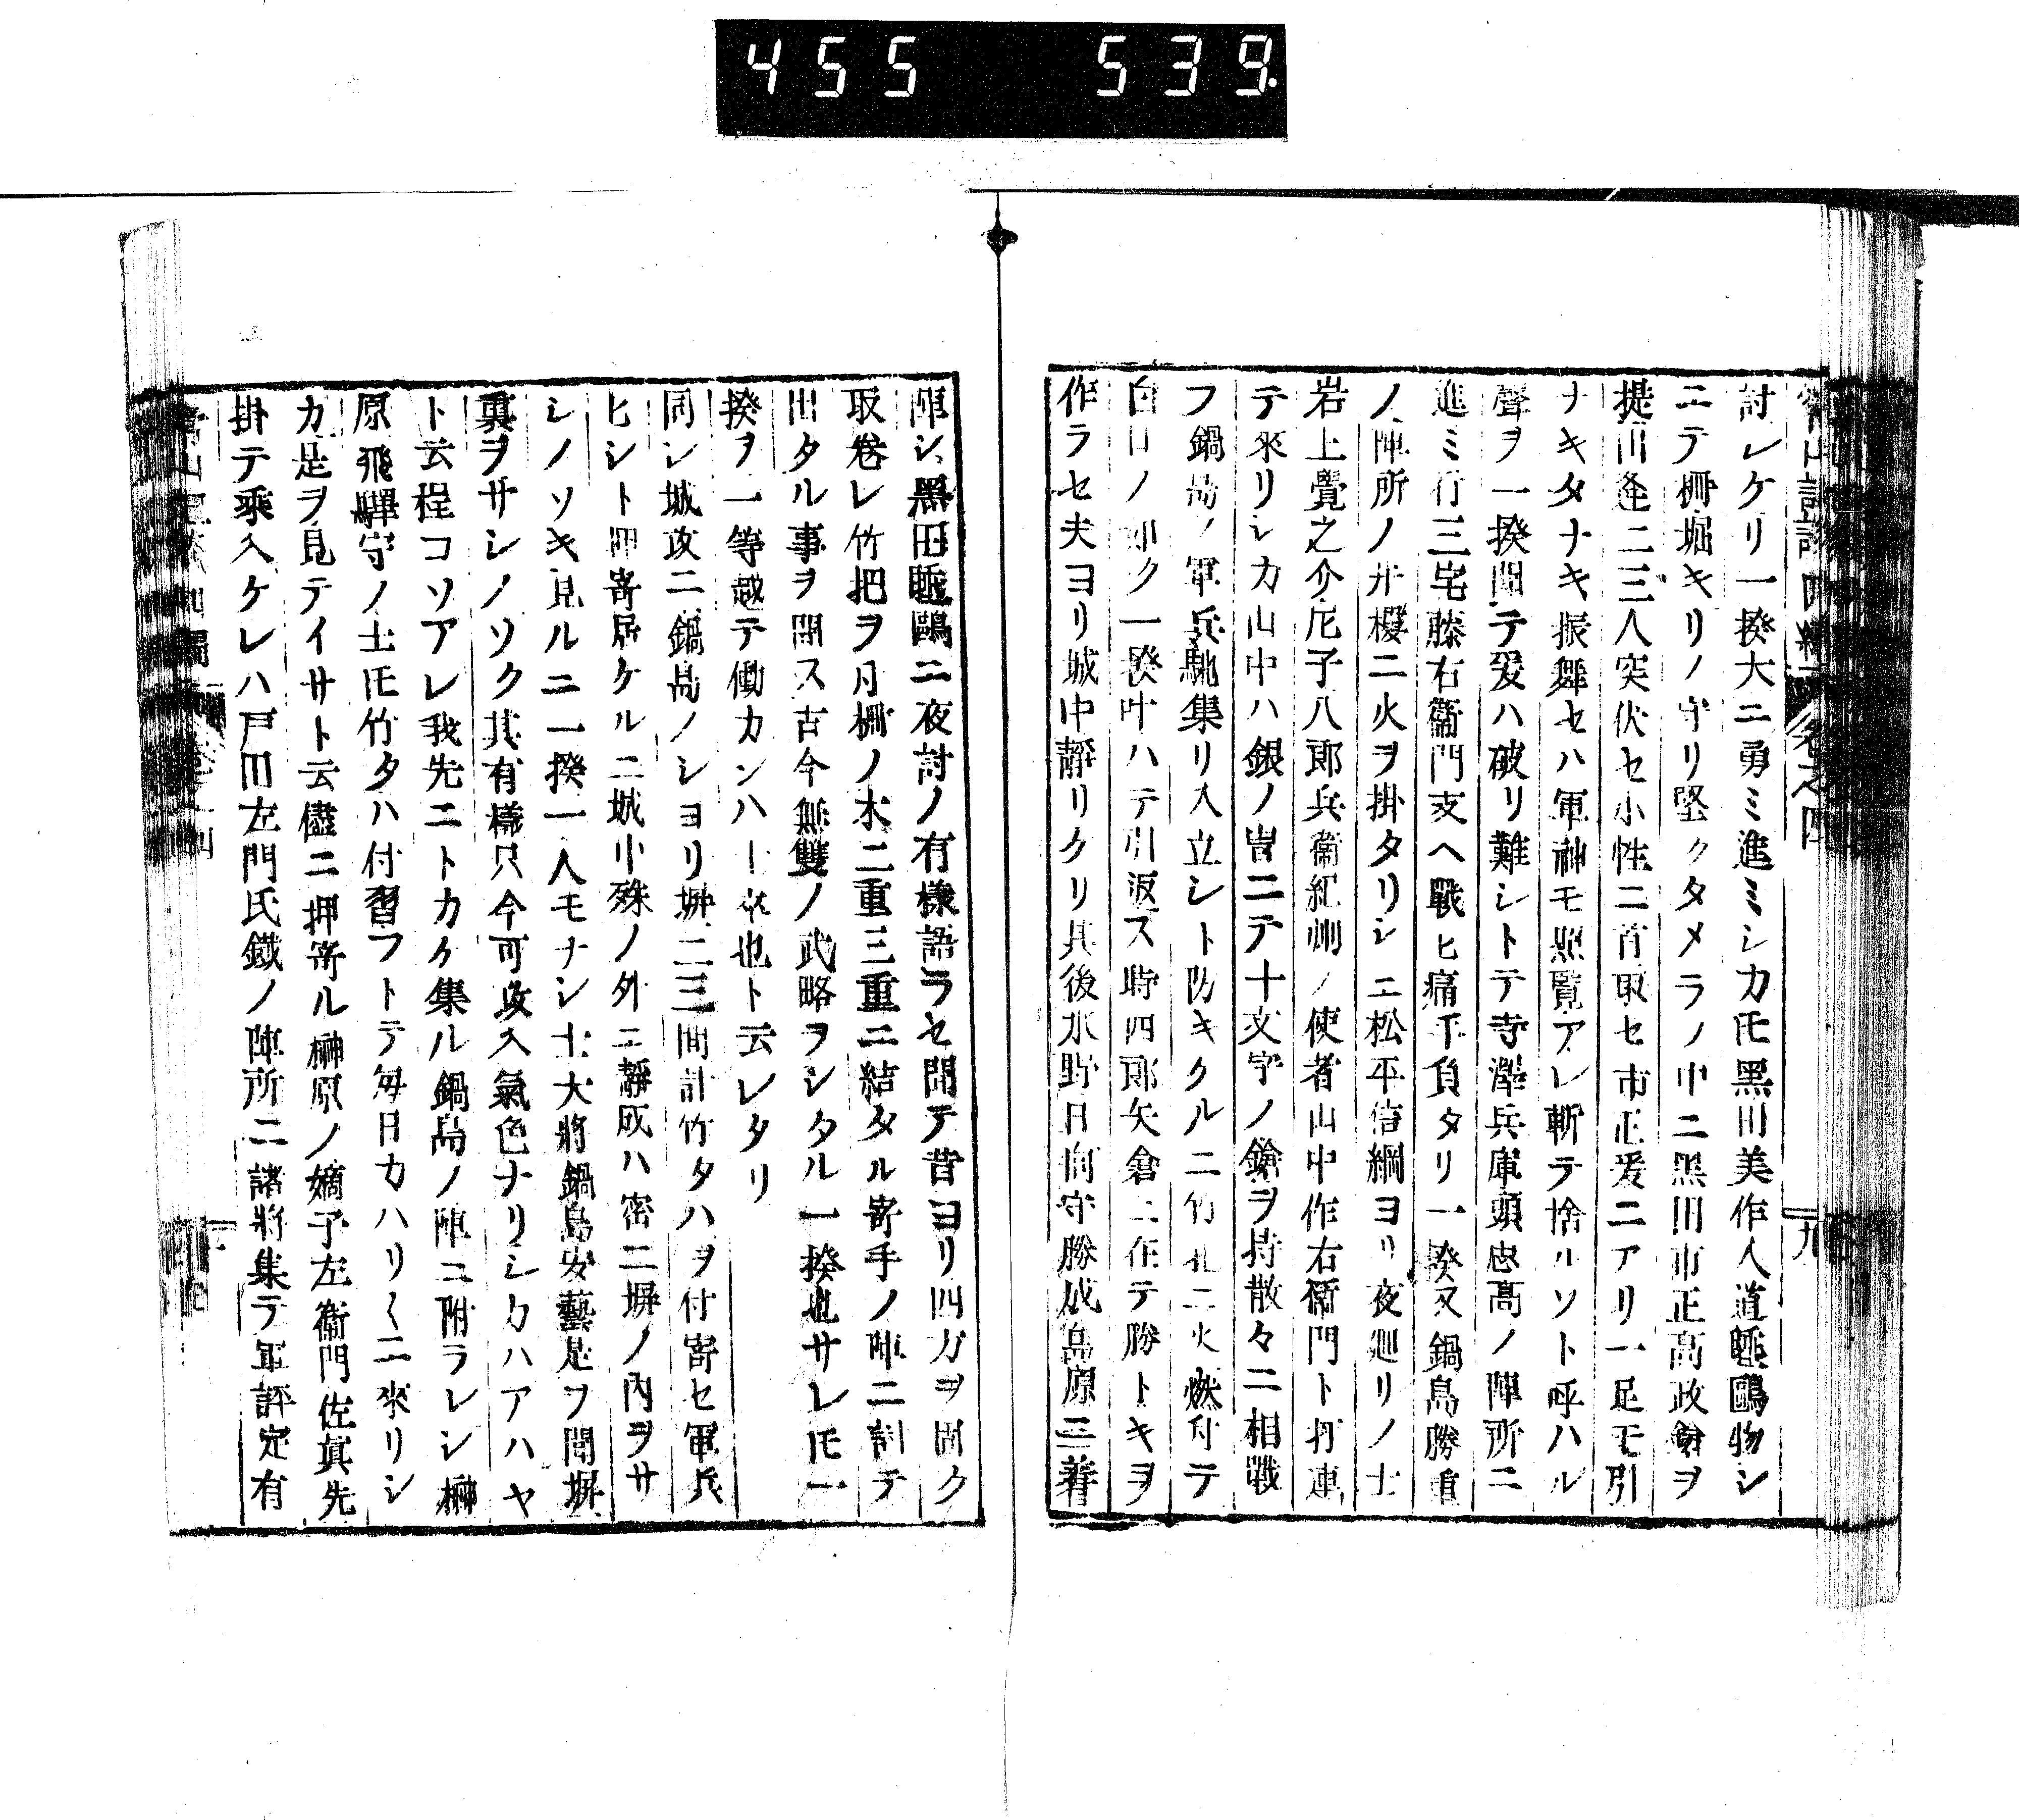 455 539
討レケリ一揆大ニ勇ミ進ミシカ𪜈黒田美作入道睡鷗物シ
ニテ柵堀キリノ守リ堅クタメラノ中ニ黒田市正高政鎗ヲ
提田逢二三人突伏セ小性ニ首取セ市正爰ニアリ一足モ引
ナキタナキ振舞セハ軍神モ照覧アレ斬テ捨ルソト呼ハル
聲ヲ一揆聞テ爰ハ破リ難シトテ寺澤兵庫頭忠高ノ陣所ニ
進ミ行三宅藤右衞門支ヘ戰ヒ痛手負タリ一揆又鍋島勝重
ノ陣所ノ井樓ニ火ヲ掛タリシニ松平信綱ヨリ夜廻リノ士
岩上覺之介尼子八郎兵衞紀州ノ使者山中作右衞門ト打連
テ來リシカ山中ハ銀ノ甾ニテ十文字ノ鎗ヲ持散々ニ相戰
フ鍋島ノ軍兵馳集リ入立シト防キクルニ竹孔ニ火燃付テ
白日ノ如ク一揆叶ハテ引返ス時四郎矢倉ニ在テ勝トキヲ
作ラセ夫ヨリ城中靜リクリ其後水野日向守勝成島原ニ着
陣シ黒田睡鷗ニ夜討ノ有樣語ラセ聞テ昔ヨリ四方ヲ圍ク
取卷レ竹把ヲ月柵ノ木二重三重ニ結タル寄手ノ陣ニ討テ
出タル事ヲ聞ス古今無雙ノ武略ヲシタル一揆也サレ𪜈一
揆ヲ一等越テ働カンハ十卒也ト云レタリ
同シ城攻ニ鍋島ノシヨリ塀二三間計竹タハヲ付寄セ軍兵
ヒシト押寄居ケルニ城中殊ノ外ニ靜成ハ密ニ塀ノ内ヲサ
シノソキ見ルニ一揆一人モナシ士大將鍋島安藝是ヲ聞塀
裏ヲサシノソク其有樣只今可攻入氣色ナリシカハアハヤ
ト云程コソアレ我先ニトカケ集ル鍋島ノ陣ニ附ラレシ榊
原飛驒守ノ士𪜈竹タハ付習フトテ毎日カハリ〱ニ來リシ
カ是ヲ見テイサト云儘ニ押寄ル榊原ノ嫡子左衞門佐眞先
掛テ乘入ケレハ戸田左門氏鐵ノ陣所ニ諸將集テ軍評定有